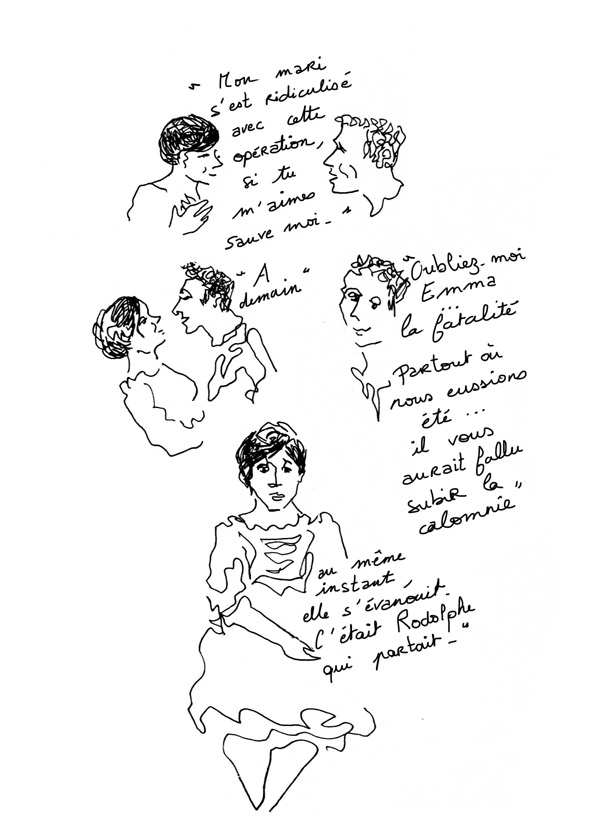 " Mon mari
s'est ridiculisé
avec cette
opération,
si tu
m'aimes
sauve moi_ "
" A
demain "
" Oubliez-moi
Emma
...
la fatalité
Partout où
nous eussions
été ...
il vous
aurait fallu
subir la
calomnie "
au même
instant,
elle s'évanouit_
C'était Rodolphe
qui partait_ "